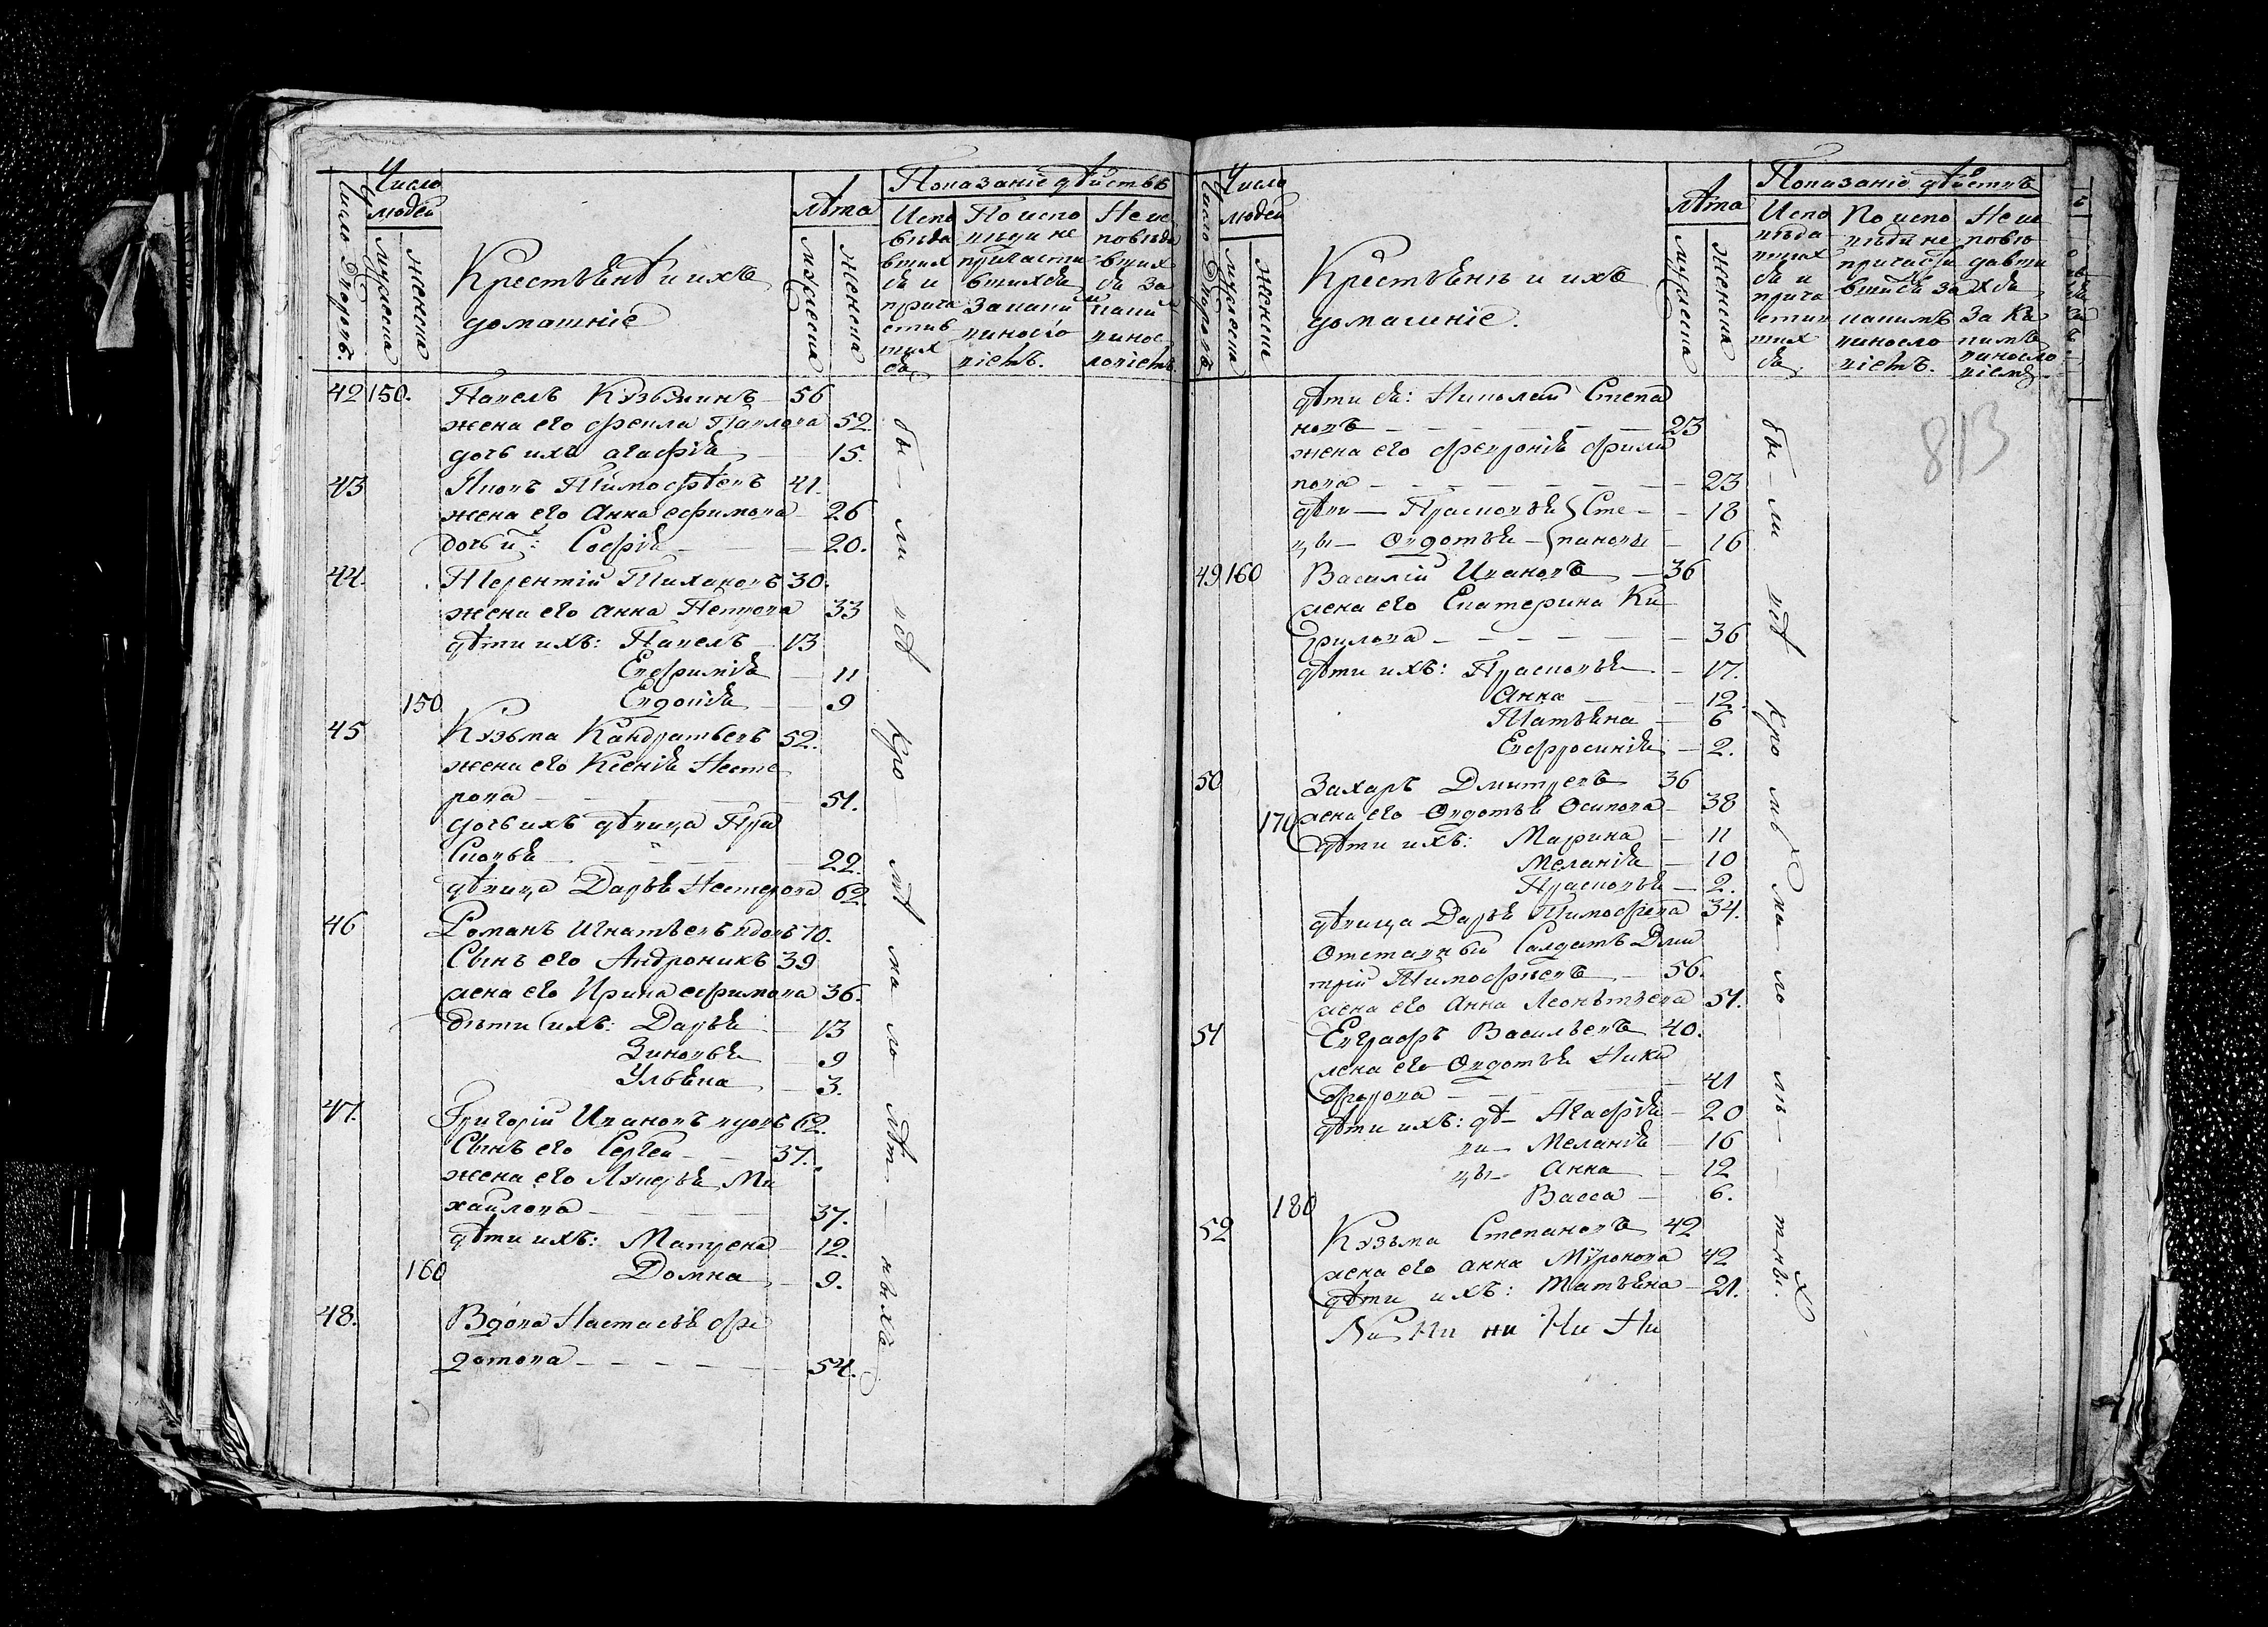 Число дворовъ.
Число людей
мужеска
женска
Крестьянѣ и ихъ
домашніе
лѣта
мужеска
женска
Показаніе дѣйствъ
Испо
вѣда
вших
ся и
прича
стив
ших
ся
По испо
вѣди не
причасти
вшихся
За каки
виносло
віемъ.
Не ис
повѣда
вших
ся за
каки
винос
ловіемъ.
42 150. Павелъ Кузьминъ 56
жена его Фекла Павлова 52.
дочь ихъ агафія 15.
43 Яковъ Тимофѣевъ 41.
жена его Анна ефимова 26
дочь и: Софія 20.
44. Терентій Тихановъ 30.
жена его анна Петрова 33
дѣти ихъ: Павелъ 13
Евфимія 11
150. Евдокія 9
45 Кузьма Кандратьевъ 52.
жена его Ксенія Несте
рова 51.
дочь ихъ дѣвица Пра
сковья 22.
дѣвица Дарья Нестерова 62.
46 Романъ Игнатьевъ вдовъ 70.
Сынъ его Андроникъ 39
жена его Ирина ефимова 36.
дѣти ихъ: Дарья 13
Зиновья 9
Ульяна 3.
47. Григорій Ивановъ вдовъ 62.
Сынъ его Сергей 37.
жена его Лукерья Ми
хайлова 37.
дѣти ихъ: Матрена 12.
160 Домна 9.
48. Вдова Настасья Фе
дотова 54.
бы- ли всѣ кро- мѣ ма- ло- лѣт- ныхъ
Число дворовъ
Число людей
мужеска
женска
Крестьянъ и ихъ
домашніе.
лѣта
мужеска
женска
Показаніе дѣйствъ
Испо
вѣда
вших
ся и
прича
стив
ших
ся
По испо
вѣди не
причасти
вшися за
какимъ
виносло
віемъ.
Не ис
повѣ
давши
хся
за ка
кимъ
виносло
віемъ.
813
дѣти ея: Николай Степа
новъ 23
жена его Февронія Фили
пова 23
дѣви— Прасковья } Сте- 18
цы— Овдотья— } пановы 16
49 160 Василій Ивановъ 36
жена его Екатерина Ки
рилова 36
дѣти ихъ: Прасковья 17.
Анна 12.
Татьяна 6
Евфросинія 2.
50 Захаръ Дмитревъ 36
жена его Овдотья Осипова 38
170 дѣти ихъ: Марина 11
Меланія 10
Прасковья 2.
дѣвица Дарья Тимофеева 34.
Отставный Салдатъ Дми
трій Тимофѣевъ 56.
жена его Анна Леонтьева 51.
51 Евграфъ Васильевъ 40.
жена его Овдотья Ники
форова 41
дѣти ихъ: дѣ- Агафія 20
ви- Меланія 16
цы- Анна 12
180 Васса 6.
52 Кузьма Степановъ 42
жена его анна Миронова 42
дѣти ихъ: Татьяна 21.
Ни Ни ни Ни Ни
бы- ли всѣ кро мѣ ма- ло- лѣ- тны х